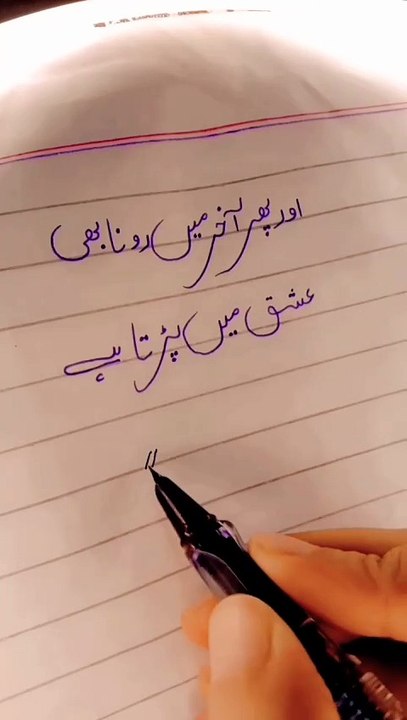 اور پھر آخر میں رونا بھی
عشق میں پڑتا ہے
"